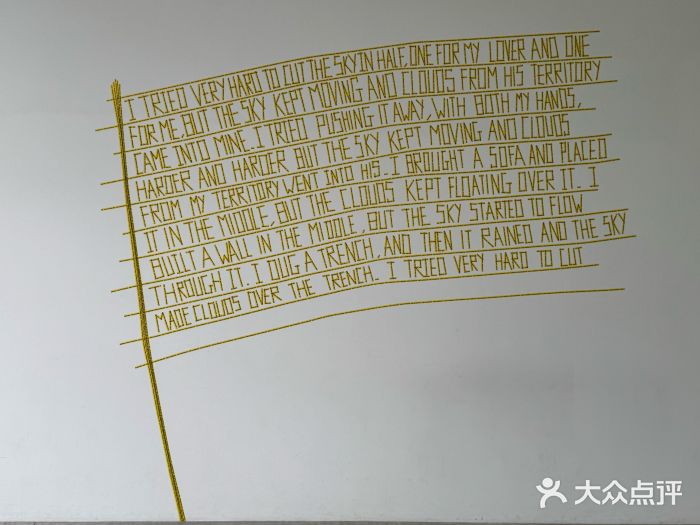 I TRIED VERY HARD TO CUT THE SKY IN HALF, ONE FOR MY LOVER AND ONE
FOR ME, BUT THE SKY KEPT MOVING AND CLOUDS FROM HIS TERRITORY
CAME INTO MINE. I TRIED PUSHING IT AWAY, WITH BOTH MY HANDS,
HARDER AND HARDER BUT THE SKY KEPT MOVING AND CLOUDS
FROM MY TERRITORY WENT INTO HIS. I BROUGHT A SOFA AND PLACED
IT IN THE MIDDLE, BUT THE CLOUDS KEPT FLOATING OVER IT. I
BUILT A WALL IN THE MIDDLE, BUT THE SKY STARTED TO FLOW
THROUGH IT. I DUG A TRENCH, AND THEN IT RAINED AND THE SKY
MADE CLOUDS OVER THE TRENCH. I TRIED VERY HARD TO CUT
大众点评